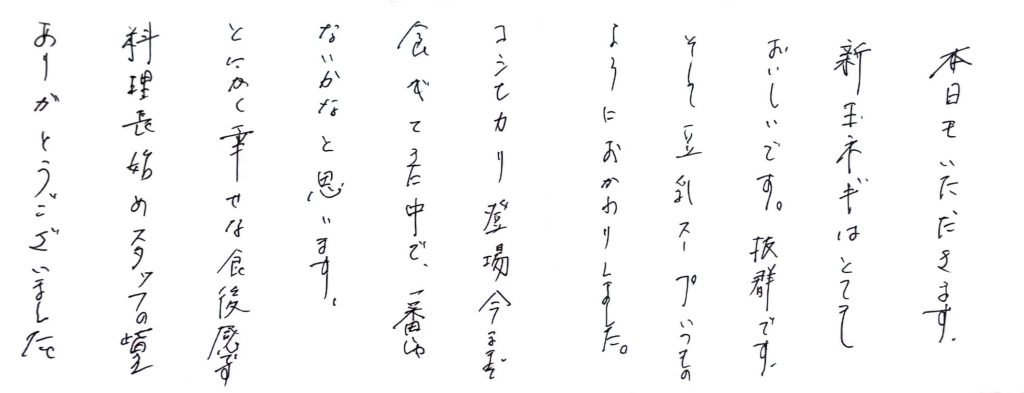 本日もいただきます。
新玉ネギはとても
おいしいです。抜群です。
そして豆乳スープいつもの
ようにおかわりしました。
コシヒカリ登場今まで
食べてきた中で、一番じゃ
ないかなと思います。
とにかく幸せな食後感です
料理長始めスタッフの皆
ありがとうございました